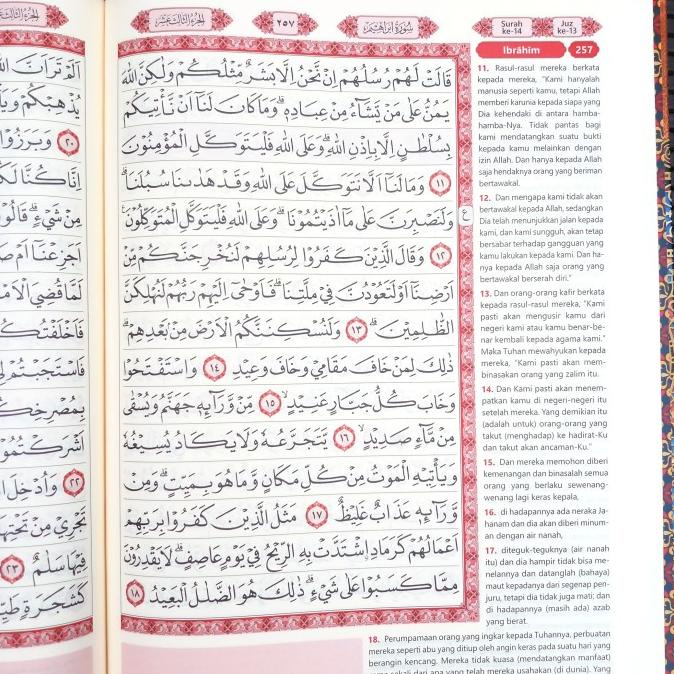 الجزء الثالث عشر
٢٥٧
سورة ابراهيم
Surah ke-14
Juz ke-13
Ibrāhīm 257
قَالَتْ لَهُمْ رُسُلُهُمْ اِنْ نَّحْنُ اِلَّا بَشَرٌ مِّثْلُكُمْ وَلٰكِنَّ اللّٰهَ
يَمُنُّ عَلٰى مَنْ يَّشَاۤءُ مِنْ عِبَادِهٖۗ وَمَا كَانَ لَنَآ اَنْ نَّأْتِيَكُمْ
بِسُلْطٰنٍ اِلَّا بِاِذْنِ اللّٰهِ ۗوَعَلَى اللّٰهِ فَلْيَتَوَكَّلِ الْمُؤْمِنُوْنَ
١١ وَمَا لَنَآ اَلَّا نَتَوَكَّلَ عَلَى اللّٰهِ وَقَدْ هَدٰىنَا سُبُلَنَاۗ
وَلَنَصْبِرَنَّ عَلٰى مَآ اٰذَيْتُمُوْنَاۗ وَعَلَى اللّٰهِ فَلْيَتَوَكَّلِ الْمُتَوَكِّلُوْنَ ࣖ
ع
١٢ وَقَالَ الَّذِيْنَ كَفَرُوْا لِرُسُلِهِمْ لَنُخْرِجَنَّكُمْ مِّنْ
اَرْضِنَآ اَوْ لَتَعُوْدُنَّ فِيْ مِلَّتِنَاۗ فَاَوْحٰٓى اِلَيْهِمْ رَبُّهُمْ لَنُهْلِكَنَّ
الظّٰلِمِيْنَ ۗ ١٣ وَلَنُسْكِنَنَّكُمُ الْاَرْضَ مِنْۢ بَعْدِهِمْ ۗ
ذٰلِكَ لِمَنْ خَافَ مَقَامِيْ وَخَافَ وَعِيْدِ ١٤ وَاسْتَفْتَحُوْا
وَخَابَ كُلُّ جَبَّارٍ عَنِيْدٍۙ ١٥ مِّنْ وَّرَاۤىِٕهٖ جَهَنَّمُ وَيُسْقٰى
مِنْ مَّاۤءٍ صَدِيْدٍۙ ١٦ يَّتَجَرَّعُهٗ وَلَا يَكَادُ يُسِيْغُهٗ
وَيَأْتِيْهِ الْمَوْتُ مِنْ كُلِّ مَكَانٍ وَّمَا هُوَ بِمَيِّتٍۗ وَمِنْ
وَّرَاۤىِٕهٖ عَذَابٌ غَلِيْظٌ ١٧ مَثَلُ الَّذِيْنَ كَفَرُوْا بِرَبِّهِمْ
اَعْمَالُهُمْ كَرَمَادِ ِۨاشْتَدَّتْ بِهِ الرِّيْحُ فِيْ يَوْمٍ عَاصِفٍۗ لَا يَقْدِرُوْنَ
مِمَّا كَسَبُوْا عَلٰى شَيْءٍ ۗذٰلِكَ هُوَ الضَّلٰلُ الْبَعِيْدُ ١٨
11. Rasul-rasul mereka berkata
kepada mereka, "Kami hanyalah
manusia seperti kamu, tetapi Allah
memberi karunia kepada siapa yang
Dia kehendaki di antara hamba-
hamba-Nya. Tidak pantas bagi
kami mendatangkan suatu bukti
kepada kamu melainkan dengan
izin Allah. Dan hanya kepada Allah
saja hendaknya orang yang beriman
bertawakal.
12. Dan mengapa kami tidak akan
bertawakal kepada Allah, sedangkan
Dia telah menunjukkan jalan kepada
kami, dan kami sungguh, akan tetap
bersabar terhadap gangguan yang
kamu lakukan kepada kami. Dan ha-
nya kepada Allah saja orang yang
bertawakal berserah diri."
13. Dan orang-orang kafir berkata
kepada rasul-rasul mereka, "Kami
pasti akan mengusir kamu dari
negeri kami atau kamu benar-be-
nar kembali kepada agama kami."
Maka Tuhan mewahyukan kepada
mereka, "Kami pasti akan mem-
binasakan orang yang zalim itu.
14. Dan Kami pasti akan menem-
patkan kamu di negeri-negeri itu
setelah mereka. Yang demikian itu
(adalah untuk) orang-orang yang
takut (menghadap) ke hadirat-Ku
dan takut akan ancaman-Ku."
15. Dan mereka memohon diberi
kemenangan dan binasalah semua
orang yang berlaku sewenang-
wenang lagi keras kepala,
16. di hadapannya ada neraka Ja-
hanam dan dia akan diberi minum-
an dengan air nanah,
17. diteguk-teguknya (air nanah
itu) dan dia hampir tidak bisa me-
nelannya dan datanglah (bahaya)
maut kepadanya dari segenap pen-
juru, tetapi dia tidak juga mati; dan
di hadapannya (masih ada) azab
yang berat.
18. Perumpamaan orang yang ingkar kepada Tuhannya, perbuatan
mereka seperti abu yang ditiup oleh angin keras pada suatu hari yang
berangin kencang. Mereka tidak kuasa (mendatangkan manfaat)
sama sekali dari apa yang telah mereka usahakan (di dunia). Yang
الجزء الثالث عشر
اَلَمْ تَرَ اَنَّ اللّٰهَ
يُذْهِبْكُمْ وَيَأْ
٢٠ وَبَرَزُوْا
اِنَّا كُنَّا لَكُ
مِنْ شَيْءٍ ۗقَالُوْا
اَجَزِعْنَآ اَمْ صَ
لَمَّا قُضِيَ الْاَمْ
فَاَخْلَفْتُكُ
فَاسْتَجَبْتُمْ لِ
بِمُصْرِخِكُ
اَشْرَكْتُمُوْ
٢٢ وَاُدْخِلَ ا
تَجْرِيْ مِنْ تَحْتِهَ
فِيْهَا سَلٰمٌ ٢٣
كَشَجَرَةٍ طَيِّ